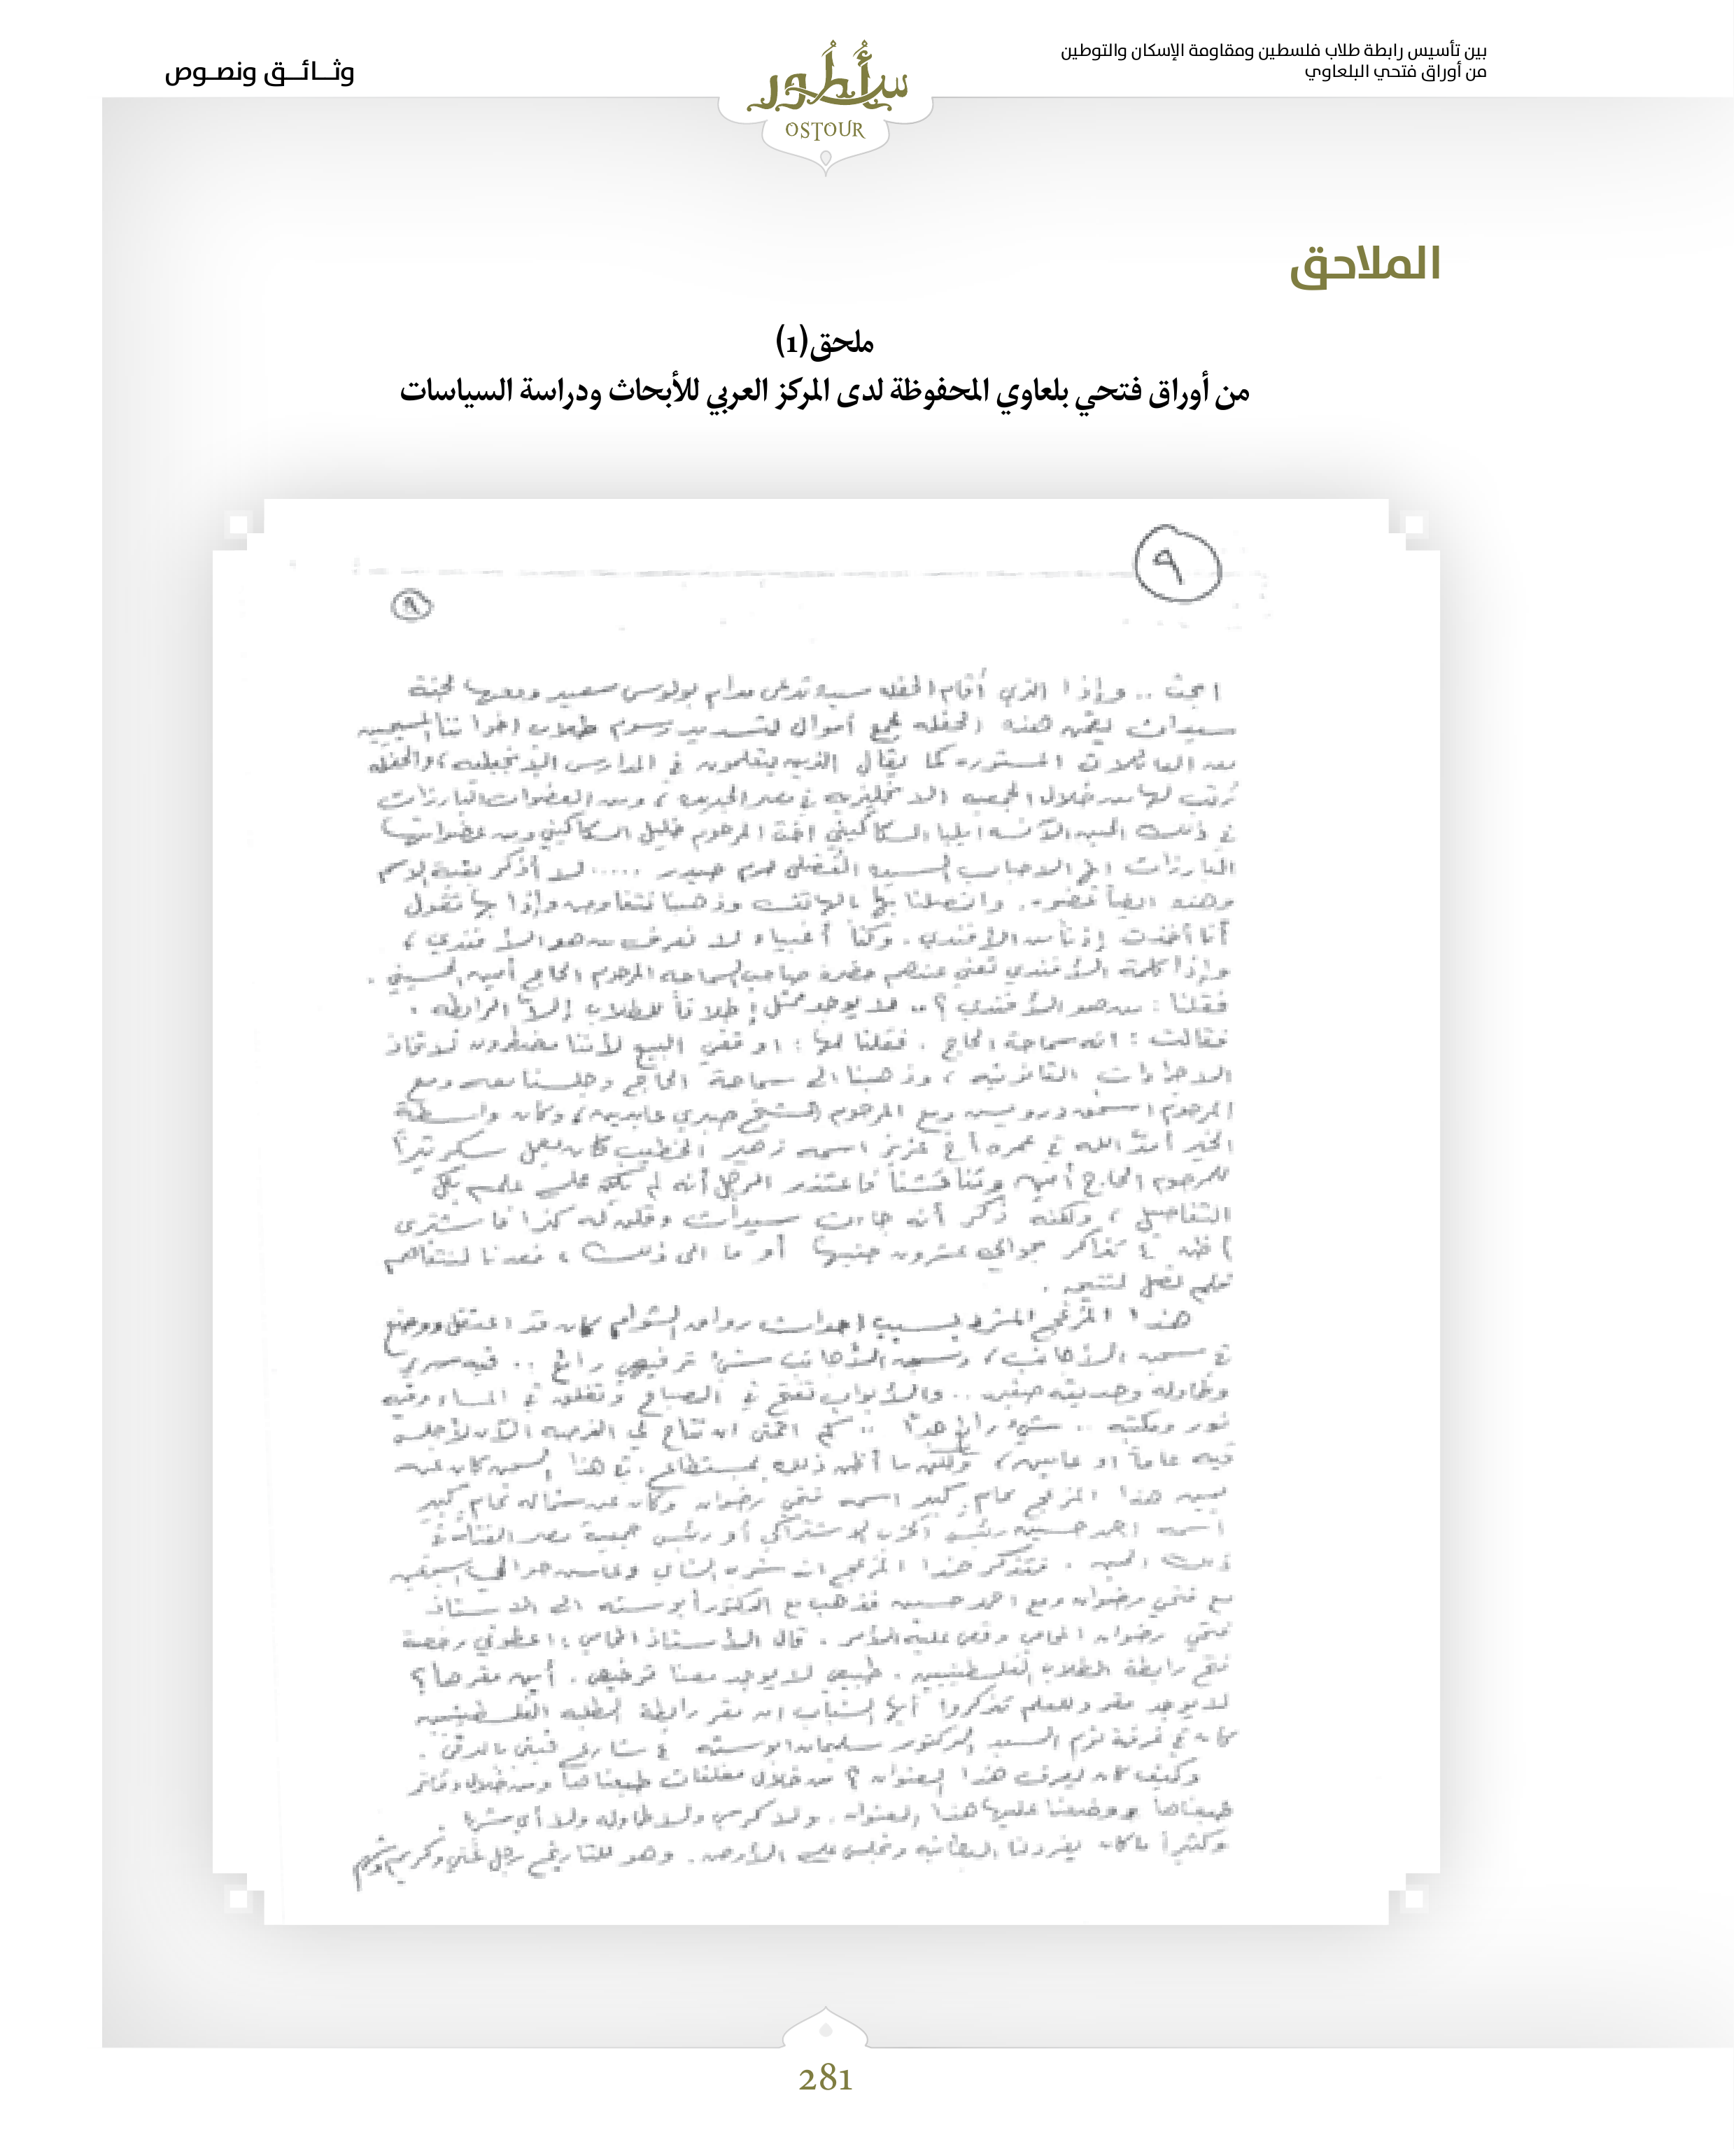 بين تأسيس رابطة طلاب فلسطين ومقاومة الإسكان والتوطين
من أوراق فتحي البلعاوي
سأطور
OSTOUR
وثـــائــــق ونصــوص
الملاحق
ملحق(1)
من أوراق فتحي بلعاوي المحفوظة لدى المركز العربي للأبحاث ودراسة السياسات
٩
٩
ابحث .. وإذا الذي أقام الحفله سيده تدعى مدام بولوس سعيد ومعها لجنة
سيدات ليقمن هذه الحفله لجمع أموال لتسديد رسوم طلاب اخواننا المسيحيين
من العائلات المستوره كما يقال الذين يتعلمون في المدارس الانجيليه، والحفله
رُتب لها من خلال الجمعيه الانجليزيه في مصر الجديده، ومن العضوات البارزات
في ذلك الحين الآنسه ايليا السكاكيني اخت المرحوم خليل السكاكيني ومن عضواتها
البارزات الى السيده الفضلى حرم حيدر ..... لا أذكر بقية الاسم
وهذه ايضاً عضوه. واتصلنا بها بالهاتف وذهبنا نتفاوض وإذا بها تقول
أنا أخذت إذناً من الأفندي. وكنا أغبياء لا نعرف من هو الأفندي،
وإذا كلمة الأفندي تعني عندهم حضرة صاحب السماحه المرحوم الحاج أمين الحسيني.
فقلنا : من هو الأفندي ؟.. فلا يوجد ممثل إطلاقاً للطلاب إلا الرابطه.
فقالت : انه سماحة الحاج. فقلنا لها : اوقفي البيع لأننا مضطرون لاتخاذ
الاجراءات القانونيه، وذهبنا الى سماحة الحاج وجلسنا معه ومع
المرحوم اسحق درويش ومع المرحوم الشيخ صبري عابدين، وكان واسطة
الخير أمدّ الله في عمره أخ عزيز اسمه زهير الخطيب كان يعمل سكرتيراً
للمرحوم الحاج أمين وتناقشنا فاعتذر الرجل أنه لم يكن على علم بكل
التفاصيل، ولكنه ذكر أنه جاءت سيدات وقلن له كذا فاشترى
أظن ٤ تذاكر بحوالي عشرون جنيهاً أو ما الى ذلك، فعدنا لنتفاهم
فلم نصل لنتيجه.
هذا المزعج بسبب احداث رواق الشوام كان قد اعتقل ووضع
في سجن الأجانب، وسجن الأجانب شيء ترفيهي رائع .. فيه سرير
وطاوله وحديقه صغيره .. والأبواب تفتح في الصباح وتغلق في المساء وفيه
نور ومكتبه .. شيء رائع جداً .. كم اتمنى ان تتاح لي الفرصه الآن لأجلس
فيه عاماً او عامين، ولكن ما أظن ذلك بمستطاع. في هذا السجن كان عن
يمين هذا المزعج محام كبير اسمه فتحي رضوان وكان عن شماله محام كبير
اسمه احمد حسين رئيس الحزب الاشتراكي أو رئيس جمعية مصر الفتاة في
ذلك الحين. فتذكر هذا المزعج انه شرب الشاي
مع فتحي رضوان ومع احمد حسين فذهب مع الدكتور أبو سته الى الاستاذ
فتحي رضوان المحامي وقص عليه الأمر. قال الأستاذ المحامي : اعطوني رخصة
فتح رابطة الطلاب الفلسطينيين. طبيعي لا يوجد معنا ترخيص. أين مقرها؟
لا يوجد مقر وللعلم تذكروا أيها الشباب ان مقر رابطة الطلبه الفلسطينيين
كان في غرفة نوم السيد الدكتور سليمان ابو سته ٤ شارع قبني بالدقي.
وكيف كان يعرف هذا العنوان ؟ من خلال مغلفات طبعناها ومن خلال دفاتر
طبعناها ووضعنا عليها هذا العنوان. ولا كرسي ولا طاوله ولا أي شيء
وكثيراً ما كان يفرد لنا البطانيه ونجلس على الأرض. وهو للتاريخ رجل غني وكريم وشهم
281